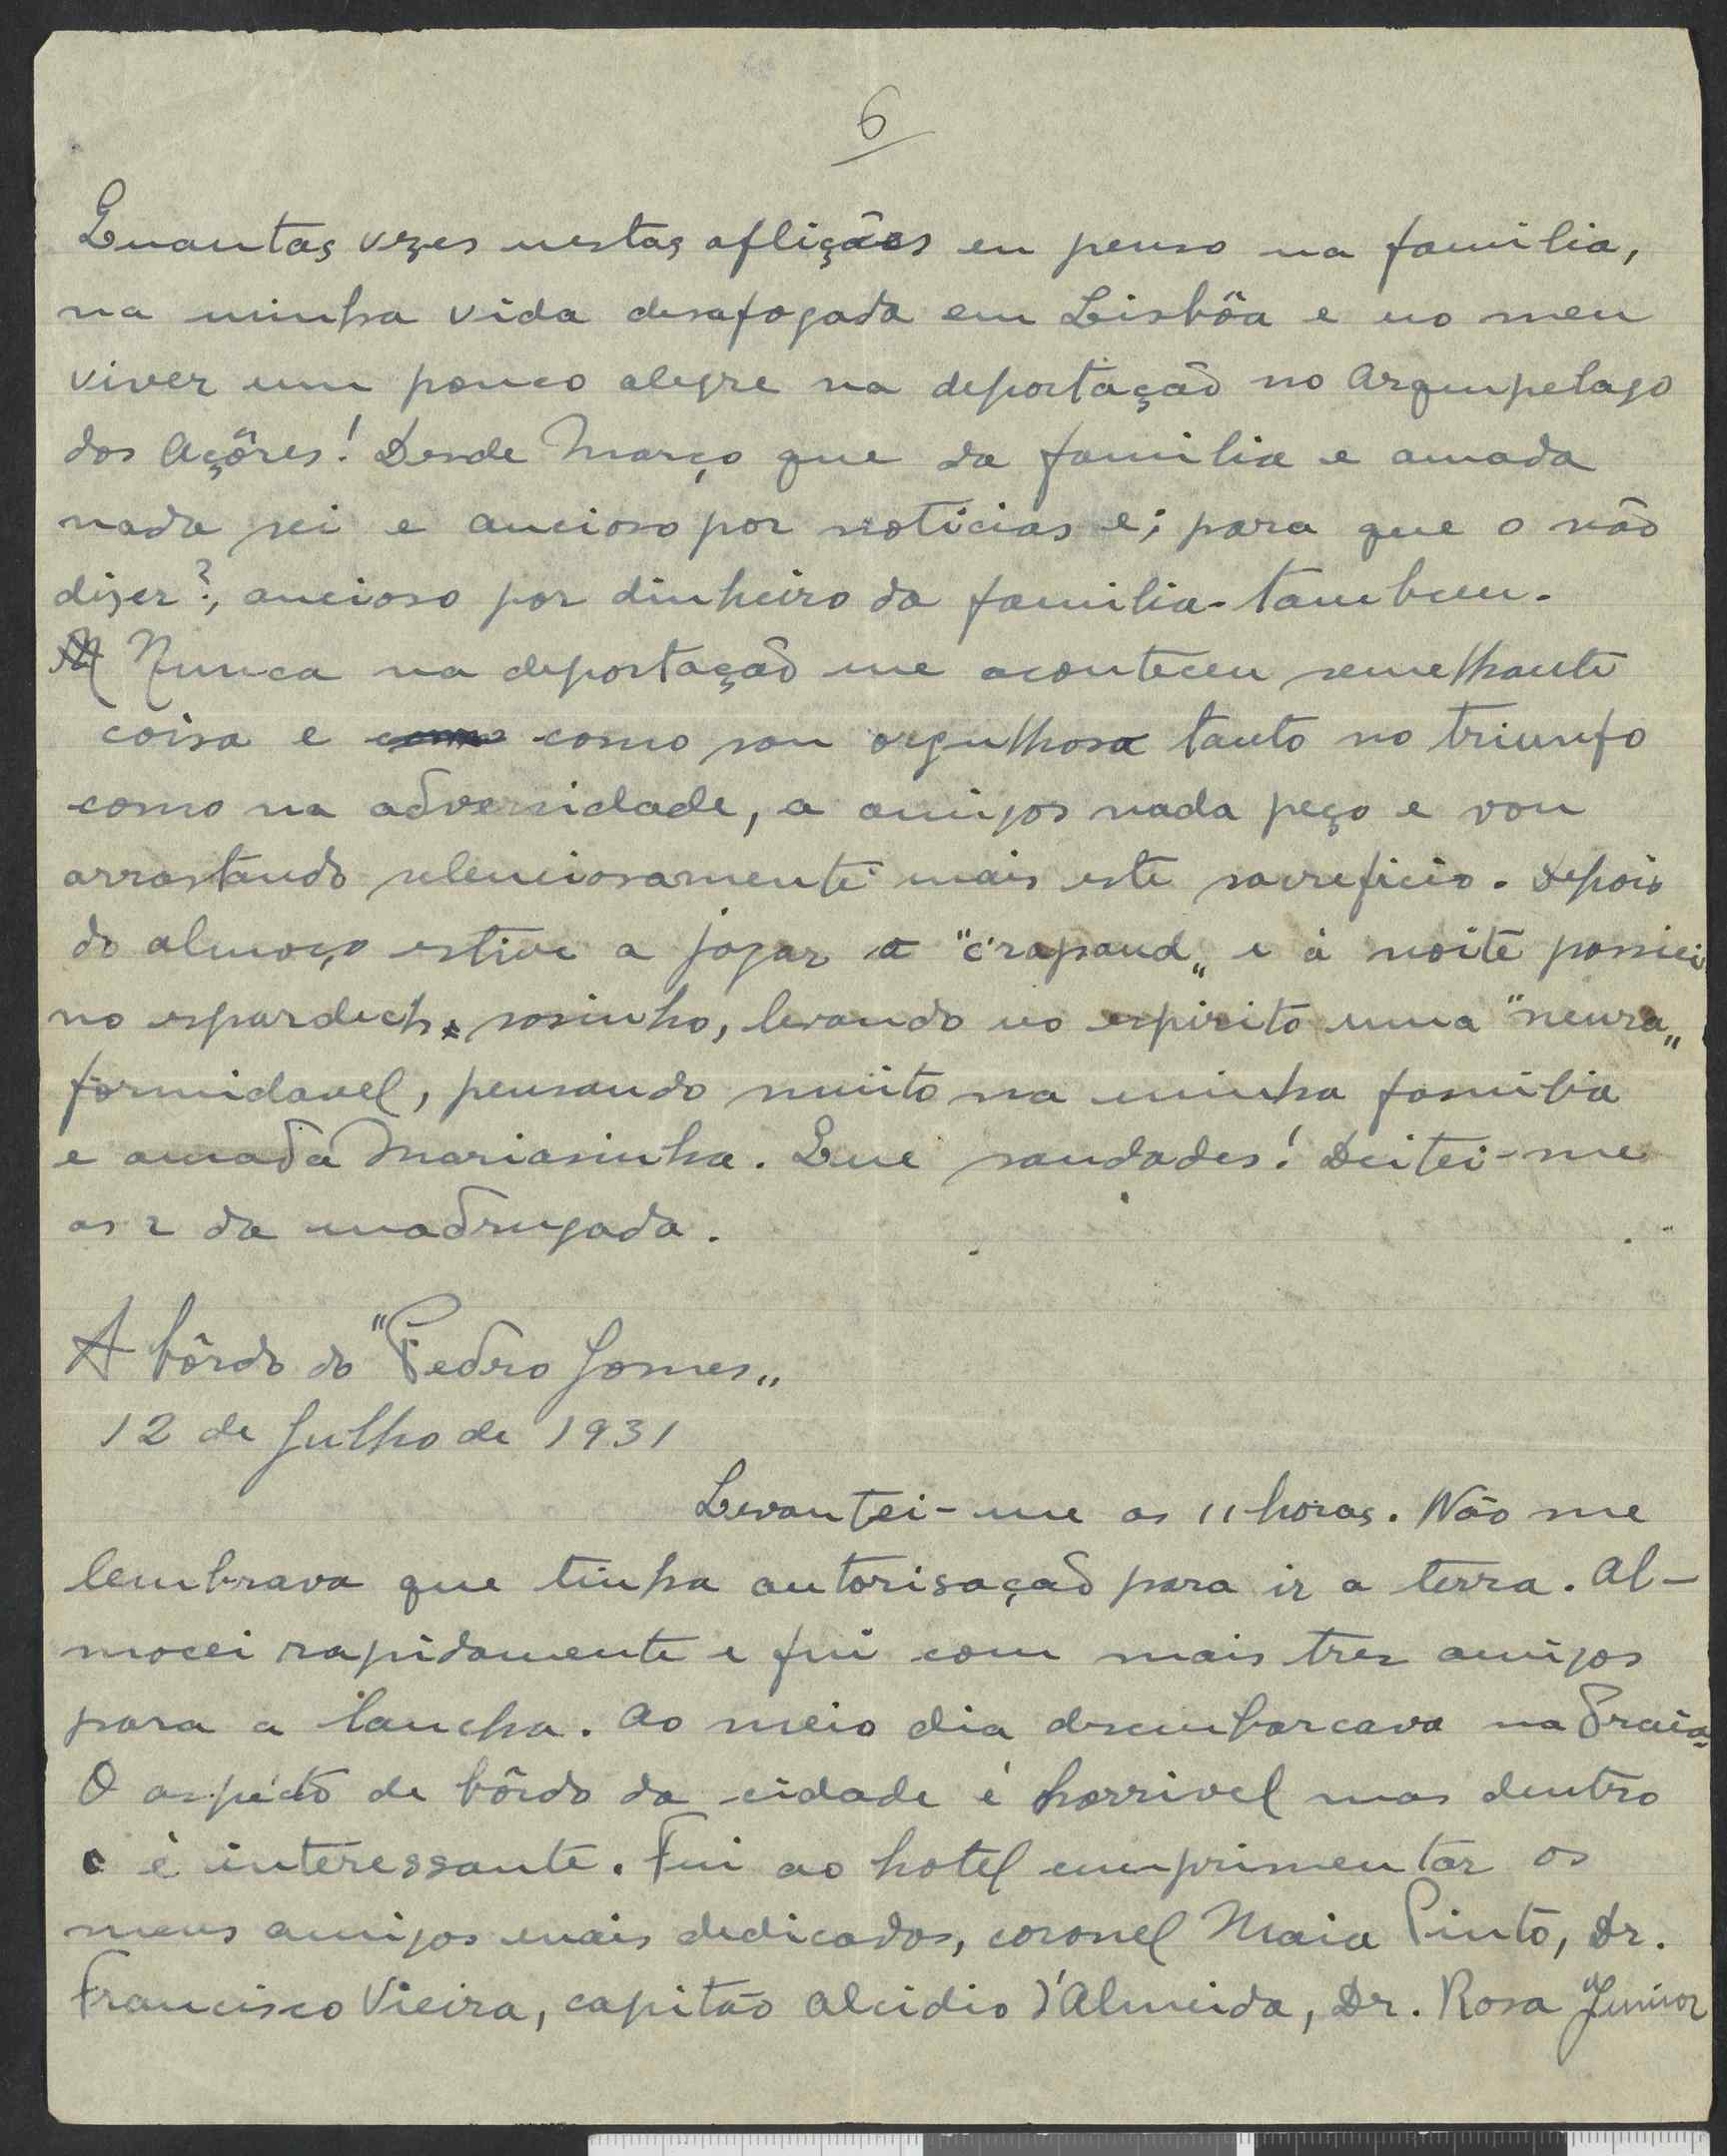 6
Quantas vezes nestas aflições eu penso na familia,
na minha vida desafogada em Lisbôa e no meu
viver um pouco alegre na deportação no Arquipelago
dos Açôres! Desde Março que da familia e amada
nada sei e ancioso por noticias e; para que o não
dizer?, ancioso por dinheiro da familia tambem.
Nunca na deportação me aconteceu semelhante
coisa e como como sou orgulhoso tanto no triunfo
como na adversidade, a amigos nada peço e vou
arrastando selenciosamente mais este sacreficio. Depois
do almoço estive a jogar o "crapaud" e á noite passiei
no espardech, sosinho, levando no espirito uma "neura"
formidavel, pensando muito na minha familia
e amada Mariasinha. Que saudades! Deitei-me
as 2 da madrugada.
A bôrdo do "Pedro Gomes"
12 de Julho de 1931
Levantei-me as 11 horas. Não me
lembrava que tinha autorisação para ir a terra. Al-
mocei rapidamente e fui com mais tres amigos
para a lancha. Ao meio dia desembarcava na Praia.
O aspécto de bôrdo da cidade é horrivel mas dentro
é interessante. Fui ao hotel cumprimentar os
meus amigos mais dedicados, coronel Maia Pinto, Dr.
Francisco Vieira, capitão Alcidio d'Almeida, Dr. Rosa Junior